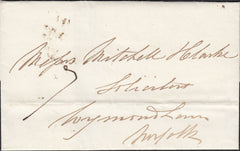 Messrs Mitchell & Clarke
7
Solicitors
Wymondham
Norfolk